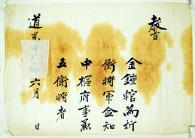 教旨
金鍾爲折
衝將軍僉知
中樞府事兼
五衛將者
道光 六月 日